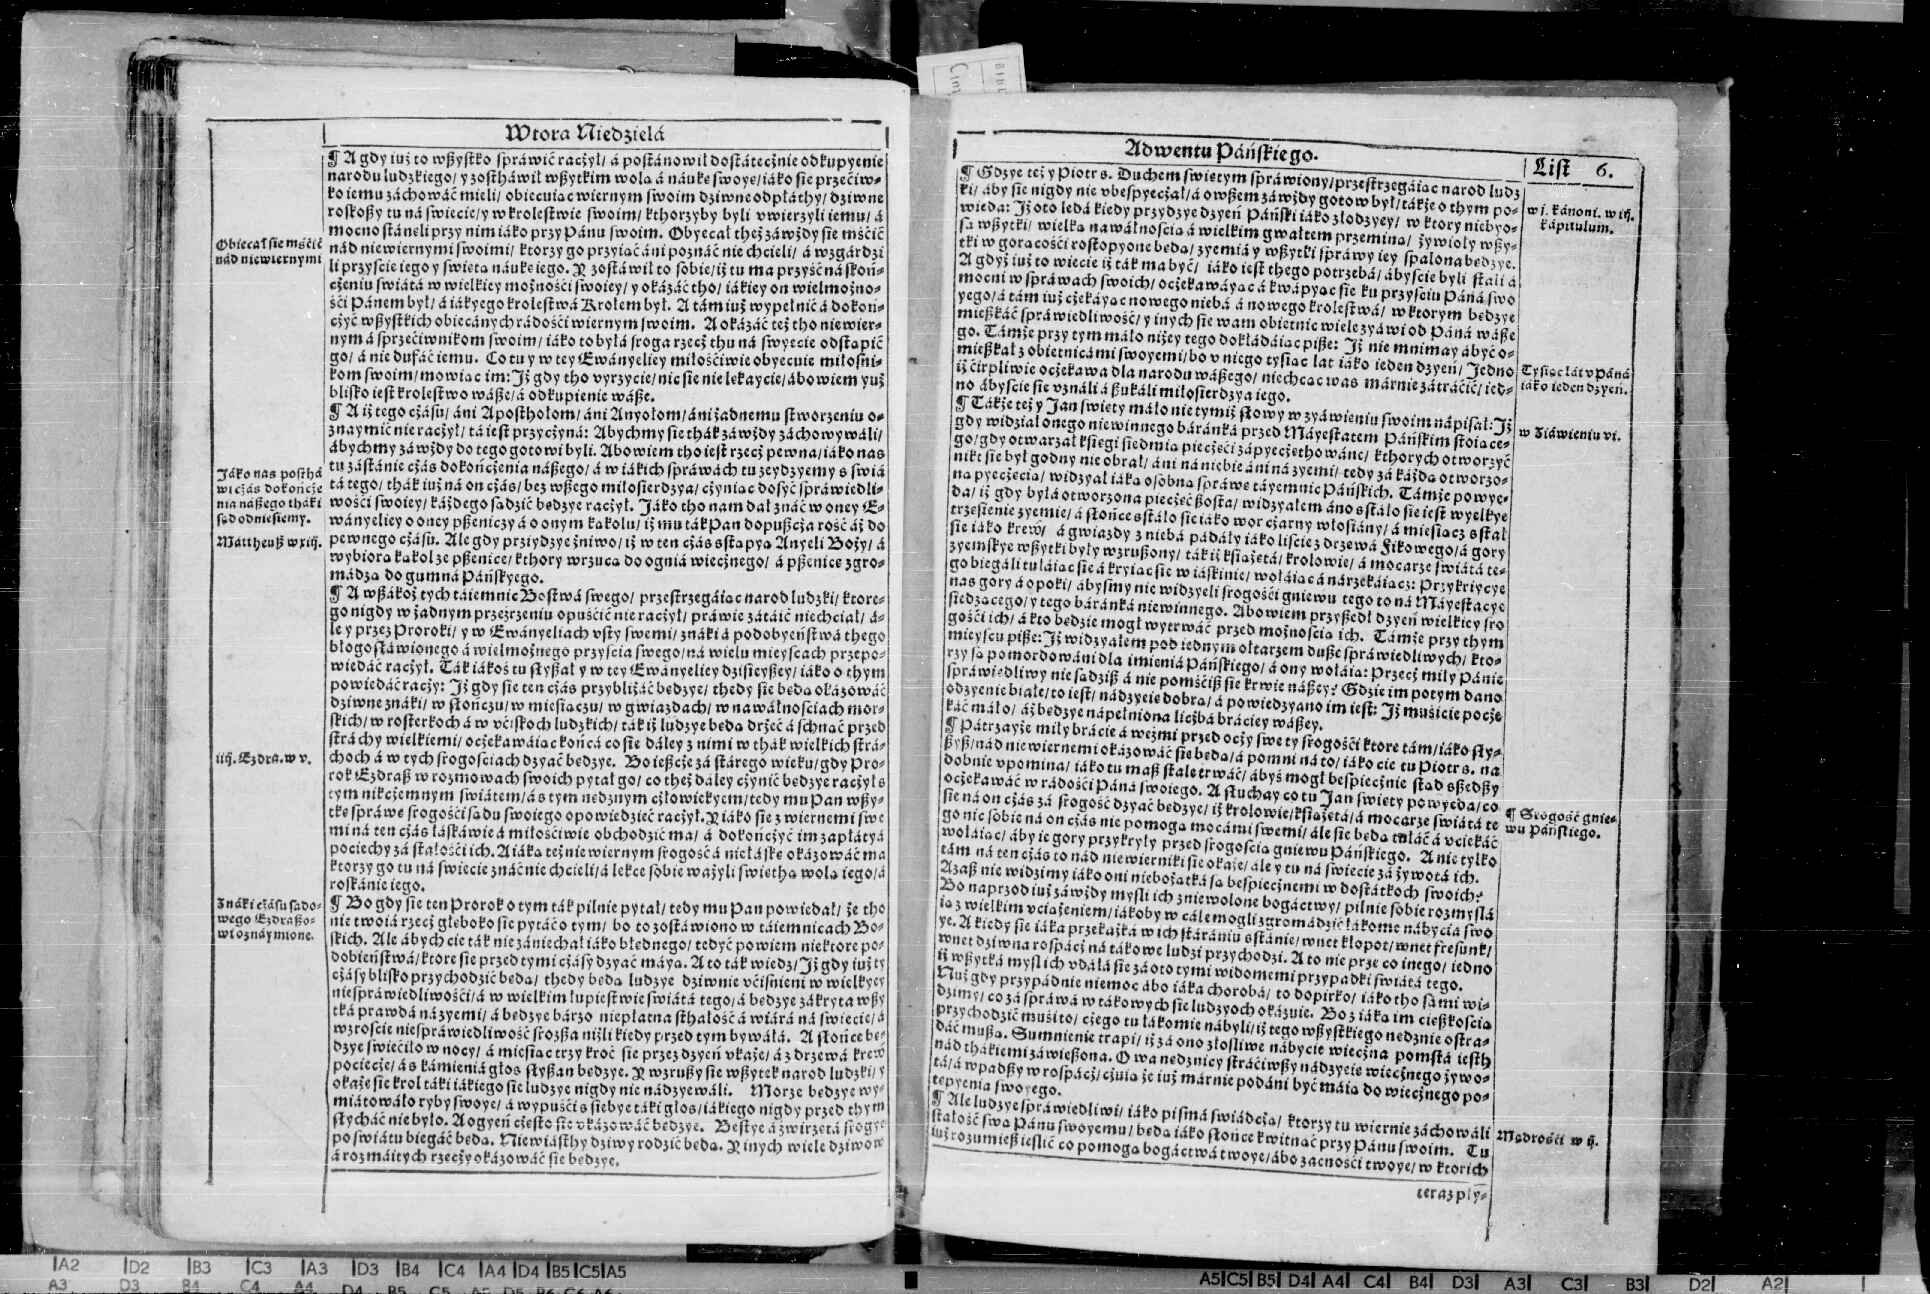 Wtora Niedzielá
¶ A gdy iuż to wßystko spráwić racżył/ á postánowił dostátecżnie odkupyenie
narodu ludzkiego/ y zostháwił wßytkim wola á náuke swoye/ iáko sie przećiw⸗
ko iemu záchowáć mieli/ obiecuiac wiernym swoim dziwne odpláthy/ dziwne
roskoßy tu ná swiecie/ y w krolestwie swoim/ kthorzyby byli vwierzyli iemu/ á
mocno stáneli przy nim iáko przy Pánu swoim. Obyecał też záwżdy sie mśćić
nád niewiernymi swoimi/ ktorzy go przyiáć áni poznáć nie chcieli/ á wzgárdzi
li przyscie iego y swieta náuke iego. Y zostáwił to sobie/ iż tu ma przyść ná skoń⸗
cżeniu swiátá w wielkiey możnośći swoiey/ y okázáć tho/ iákiey on wielmożno⸗
śći Pánem był/ á iákyego krolestwá Krolem był. A tám iuż wypełnić á dokoń⸗
cżyć wßystkich obiecánych rádośći wiernym swoim. A okázáć też tho niewier⸗
nym á sprzećiwnikom swoim/ iáko to byłá sroga rzecż thu ná swyecie odstąpić
go/ á nie dufáć iemu. Co tu y w tey Ewányeliey miłośćiwie obyecuie miłośni⸗
kom swoim/ mowiac im: Iż gdy tho vyrzycie/ nic sie nie lekaycie/ ábowiem yuż
blisko iest krolestwo wáße/ á odkupienie wáße.
¶ A iż tego cżásu/ áni Apostholom/ áni Anyołom/ áni żadnemu stworzeniu o⸗
znaymić nie racżył/ tá iest przycżyná: Abychmy sie thák záwżdy záchowywáli/
ábychmy záwżdy do tego gotowi byli. Abowiem tho iest rzecż pewna/ iáko nas
tu zástánie cżás dokońcżenia nášego/ á w iákich spráwach tu zeydzyemy s swiá
tá tego/ thák iuż ná on cżás/ bez wßego miłosierdzya/ cżyniac dosyć spráwiedli⸗
wośći swoiey/ káżdego sadzić bedzye racżył. Jáko tho nam dał znáć w oney E⸗
wányeliey o oney pßeniczy á o onym kakolu/ iż mu ták Pan dopußcża rość áż do
pewnego cżásu. Ale gdy przyidzye żniwo/ iż w ten cżás sstapya Anyeli Boży/ á
wybiora kakol ze pßenice/ kthory wrzuca do ogniá wiecżnego/ á pßenice zgro⸗
mádza do gumná Páńskyego.
¶ A wßákoż tych táiemnic Bostwá swego/ przestrzegáiac narod ludzki/ ktore⸗
go nigdy w żadnym przeżrzeniu opuśćić nie racżył/ práwie zátáić niechciał/ á⸗
le y przez Proroki/ y w Ewányeliach vsty swemi/ znáki á podobyeństwá thego
błogosłáwionego á wielmożnego przyscia swego/ ná wielu mieyscach przepo⸗
wiedáć racżył. Ták iákoś tu słyßał y w tey Ewányeliey dzisieyßey/ iáko o thym
powiedáć racży: Iż gdy sie ten cżás przybliżáć bedzye/ thedy sie beda okázowáć
dziwne znáki/ w słończu/ w miesiaczu/ w gwiazdach/ w nawáłnościach mor⸗
skich/ w rosterkoch á w vćiskoch ludzkich/ ták iż ludzye beda drżeć á schnać przed
stráchy wielkiemi/ ocżekawáiac końcá co sie dáley z nimi w thák wielkich strá⸗
choch á w tych srogościach dzyać bedzye. Bo ießcże zá stárego wieku/ gdy Pro⸗
rok Ezdraß w rozmowach swoich pytał go/ co theż dáley cżynić bedzye racżył s
tym nikcżemnym swiátem/ á s tym nedznym cżłowiekyem/ tedy mu Pan wßy⸗
tke spráwe srogośći sadu swoiego opowiedzieć racżył. Y iáko sie z wiernemi swe
mi ná ten cżás łáskáwie á miłośćiwie obchodzić ma/ á dokończyć im zapłátyá
pociechy zá stałośći ich. A iáka też niewiernym srogość á niełáske okázowáć ma
ktorzy go tu ná swiecie znáć nie chcieli/ á lekce sobie ważyli swietha wola iego/ á
roskánie iego.
¶ Bo gdy sie ten Prorok o tym ták pilnie pytał/ tedy mu Pan powiedał/ że tho
nie twoiá rzecż głeboko sie pytáć o tym/ bo to zostáwiono w táiemnicach Bo⸗
skich. Ale ábych cie ták nie zániechał iáko błednego/ tedyć powiem niektore po⸗
dobieństwá/ ktore sie przed tymi cżásy dzyać máya. A to ták wiedz/ Iż gdy iuż ty
cżásy blisko przychodzić beda/ thedy beda ludzye dziwnie vćiśnieni w wielkyey
niespráwiedliwośći/ á w wielkim łupiestwie swiátá tego/ á bedzye zákryta wßy
tká prawdá ná zyemi/ á bedzye bárzo niepłatna sthałość á wiárá ná swiecie/ á
wzroście niespráwiedliwość sroższa niżli kiedy przed tym bywáłá. A słońce be⸗
dzye swiećiło w nocy/ á miesiac trzy kroć sie przez dzyeń vkaże/ á z drzewá krew
pociecże/ á s kámieniá głos słyßan bedzye. Y wzrußy sie wßytek narod ludzki/ y
okaże sie krol táki iákiego sie ludzye nigdy nie nádzyewáli. Morze bedzye wy⸗
miátowáło ryby swoye/ á wypuśći s siebye táki głos/ iákiego nigdy przed thym
słycháć nie było. A ogyeń cżesto sie vkázowáć bedzye. Bestye á źwirzetá srogye
po swiátu biegáć beda. Niewiásthy dziwy rodzić beda. Y inych wiele dziwow
á rozmáitych rzecży okázowáć sie bedzye.
Obiecał sie mśćić
nád niewiernymi
Jáko nas posthá
wi cżás dokończe
nia náßego tháki
sąd odniesiemy.
Mattheuß w xiij.
iiij. Ezdra. w v.
Znáki cżásu sado⸗
wego Ezdraßo⸗
wi oznáymione.
Adwentu Páńskiego.
List 6.
¶ Gdzye też y Piotr s. Duchem swietym spráwiony/ przestrzegáiac narod ludz
ki/ áby sie nigdy nie vbespyecżał/ á owßem záwżdy gotow był/ tákże o thym po⸗
wieda: Iż oto ledá kiedy przydzye dzyeń Páński iáko złodzyey/ w ktory niebyo⸗
sa wßytki/ wielka nawáłnościa á wielkim gwałtem przemina/ żywioły wßy⸗
tki w goracośći rostopyone beda/ zyemiá y wßytki spráwy iey spalona bedzye.
A gdyż iuż to wiecie iż ták ma być/ iáko iest thego potrzebá/ ábyscie byli stali á
mocni w spráwach swoich/ ocżekawáyac á kwápyac sie ku przyściu Páná swo
yego/ á tám iuż cżekáyac nowego niebá á nowego krolestwá/ w ktorym bedzye
mießkáć spráwiedliwość/ y inych sie wam obietnic wiele zyáwi od Páná wáße
go. Támże przy tym máło niżey tego dokłádáiac piße: Iż nie mnimay ábyć o⸗
mießkał z obietnicámi swoyemi/ bo v niego tysiac lat iáko ieden dzyeń/ Jedno
iż ćirpliwie ocżekawa dla narodu wáßego/ niechcac was márnie zátráćić/ ied⸗
no ábyście sie vználi á ßukáli miłosierdzya iego.
¶ Tákże też y Jan swiety máło nie tymiż słowy w zyáwieniu swoim nápisał: Iż
gdy widział onego niewinnego báránká przed Máyestatem Páńskim stoiące⸗
go/ gdy otwarzał ksiegi siedmia piecżeći zápyecżethowáne/ kthorych otworzyć
nikt sie był godny nie obrał/ áni ná niebie áni ná zyemi/ tedy zá káżda otworzo⸗
na pyecżecia/ widzyał iáka osobna spráwe táyemnic Páńskich. Támże powye⸗
da/ iż gdy byłá otworzona piecżeć ßosta/ widzyałem áno sstáło sie iest wyelkye
trzesienie zyemie/ á słońce sstáło sie iáko wor cżarny włosiány/ á miesiacz sstał
sie iáko krew/ á gwiazdy z niebá pádáły iáko liście z drzewá Fikowego/ á gory
zyemskye wßytki były wzrußony/ ták iż ksiażetá/ krolowie/ á mocarze swiátá te⸗
go biegáli tułáiac sie á kryiac sie w iáskinie/ wołáiac á nárzekáiacz: Przykriycye
nas gory á opoki/ ábysmy nie widzyeli srogośći gniewu tego to ná Máyestacye
siedzacego/ y tego báránká niewinnego. Abowiem przyßedł dzyeń wielkiey sro
gośći ich/ á kto bedzie mogł wytrwáć przed możnościa ich. Támże przy thym
mieyscu piße: Iż widzyałem pod iednym ołtarzem duße spráwiedliwych/ kto⸗
rzy sa pomordowáni dla imieniá Páńskiego/ á ony wołáia: Przecż miły Pánie
spráwiedliwy nie sadziß á nie pomśćiß sie krwie náßey? Gdzie im potym dano
odzyenie białe/ to iest/ nádzyeie dobra/ á powiedzyano im iest: Iż muśicie pocże
káć máło/ áż bedzye nápełniona licżbá bráciey wáßey.
¶ Pátrzayże miły brácie á weźmi przed ocży swe ty srogośći ktore tám/ iáko sły⸗
ßyß/ nád niewiernemi okázowáć sie beda/ á pomni ná to/ iáko cie tu Piotr s. na
dobnie vpomina/ iáko tu maß stale trwáć/ ábyś mogł bespiecżnie stad sßedßy
ocżekawáć w rádośći Páná swoiego. A słuchay co tu Jan swiety powyeda/ co
sie ná on cżás zá srogość dzyać bedzye/ iż krolowie/ ksiażetá/ á mocarze swiátá te
go nic sobie ná on cżás nie pomoga mocámi swemi/ ále sie beda tułáć á vciekáć
wołáiac/ áby ie gory przykryły przed srogościa gniewu Páńskiego. A nie tylko
tám ná ten cżás to nád niewierniki sie okaże/ ále y tu ná swiecie zá żywotá ich.
Azaß nie widzimy iáko oni niebożatká sa bespiecżnemi w dostátkoch swoich?
Bo naprzod iuż záwżdy myśli ich zniewolone bogáctwy/ pilnie sobie rozmyślá
ia z wielkim vciażeniem/ iákoby w cále mogli zgromádzić łákome nábycia swo
ye. A kiedy sie iáka przekażká w ich stárániu sstánie/ wnet kłopot/ wnet fresunk/
wnet dziwna rospácż ná tákowe ludzi przychodzi. A to nie prze co inego/ iedno
iż wßytká myśl ich vdáłá sie zá oto tymi widomemi przypadki swiátá tego.
Nuż gdy przypádnie niemoc ábo iáka chorobá/ to dopirko/ iáko tho sámi wi⸗
dzimy/ co zá spráwá w tákowych sie ludzyoch okázuie. Bo z iáka im ciężkościa
przychodzić muśi to/ cżego tu łákomie nábyli/ iż tego wßystkiego nedznie ostrá⸗
dáć mußa. Sumnienie trapi/ iż zá ono złośliwe nábycie wiecżna pomstá iesth
nád thákiemi záwießona. O wa nedznicy stráćiwßy nádzyeie wiecżnego żywo⸗
tá/ á wpadßy w rospácż/ cżuia że iuż márnie podáni być máia do wiecżnego po⸗
tepyenia swoyego.
¶ Ale ludzye spráwiedliwi/ iáko pismá swiádcża/ ktorzy tu wiernie záchowáli
stałość swa Pánu swoyemu/ beda iáko słońce kwitnáć przy Pánu swoim. Tu
iuż rozumieß ieslić co pomoga bogáctwá twoye/ ábo zacnośći twoye/ w ktorich
teraz pły⸗
w j. kánoni. w iij.
kápitulum.
Tysiac lat v Páná
iáko ieden dzyeń.
w Ziáwieniu vi.
¶ Srogość gnie⸗
wu Páńskiego.
Mądrośći w ij.
A2 D2 B3 C3 A3 D3 B4 C4 A4 D4 B5 C5 A5
A3 D3 B4 C4 A4 D4 B5 C5
A5 C5 B5 D4 A4 C4 B4 D3 A3 C3 B3 D2 A2